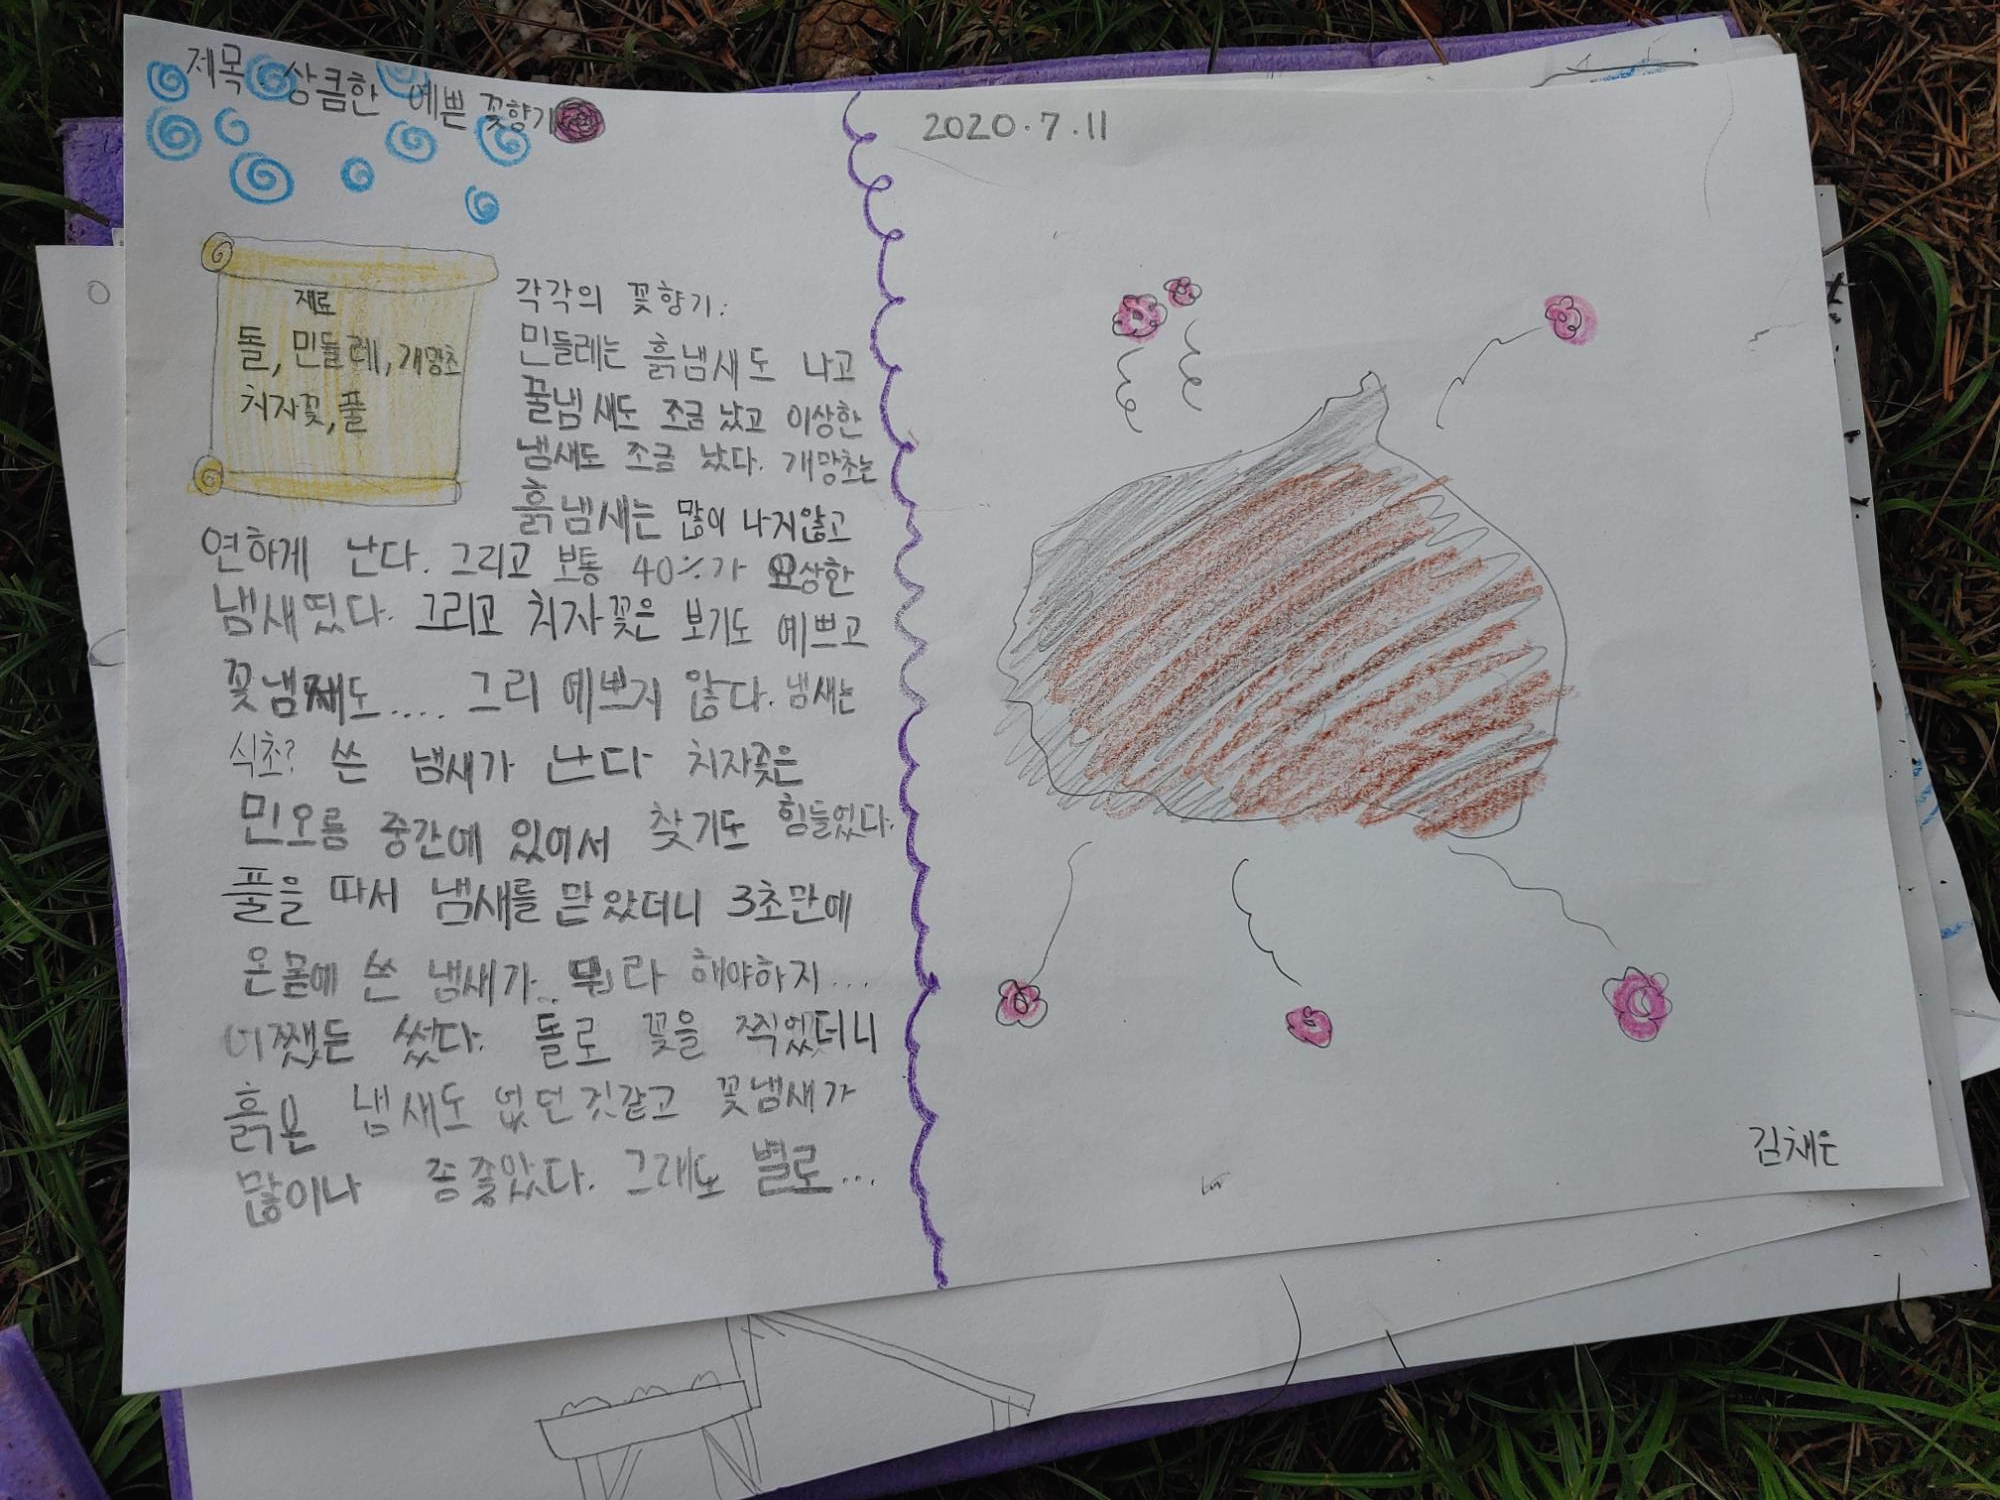 제목: 상큼한 예쁜 꽃향기
2020.7.11
재료
돌, 민들레, 개망초
치자꽃, 풀
각각의 꽃향기:
민들레는 흙냄새도 나고
꿀냄새도 조금 났고 이상한
냄새도 조금 났다. 개망초는
흙냄새는 많이 나지않고
연하게 난다. 그리고 보통 40%가 요상한
냄새였다. 그리고 치자꽃은 보기도 예쁘고
꽃냄새도.... 그리 예쁘지 않다. 냄새는
식초? 쓴 냄새가 난다 치자꽃은
민오름 중간에 있어서 찾기도 힘들었다.
풀을 따서 냄새를 맏았더니 3초만에
온몸에 쓴 냄새가.. 뭐라 해야하지...
어쨌든 썼다. 돌로 꽃을 찍었더니
흙은 냄새도 없던것같고 꽃냄새가
많이나 좋았다. 그래도 별로...
김채은